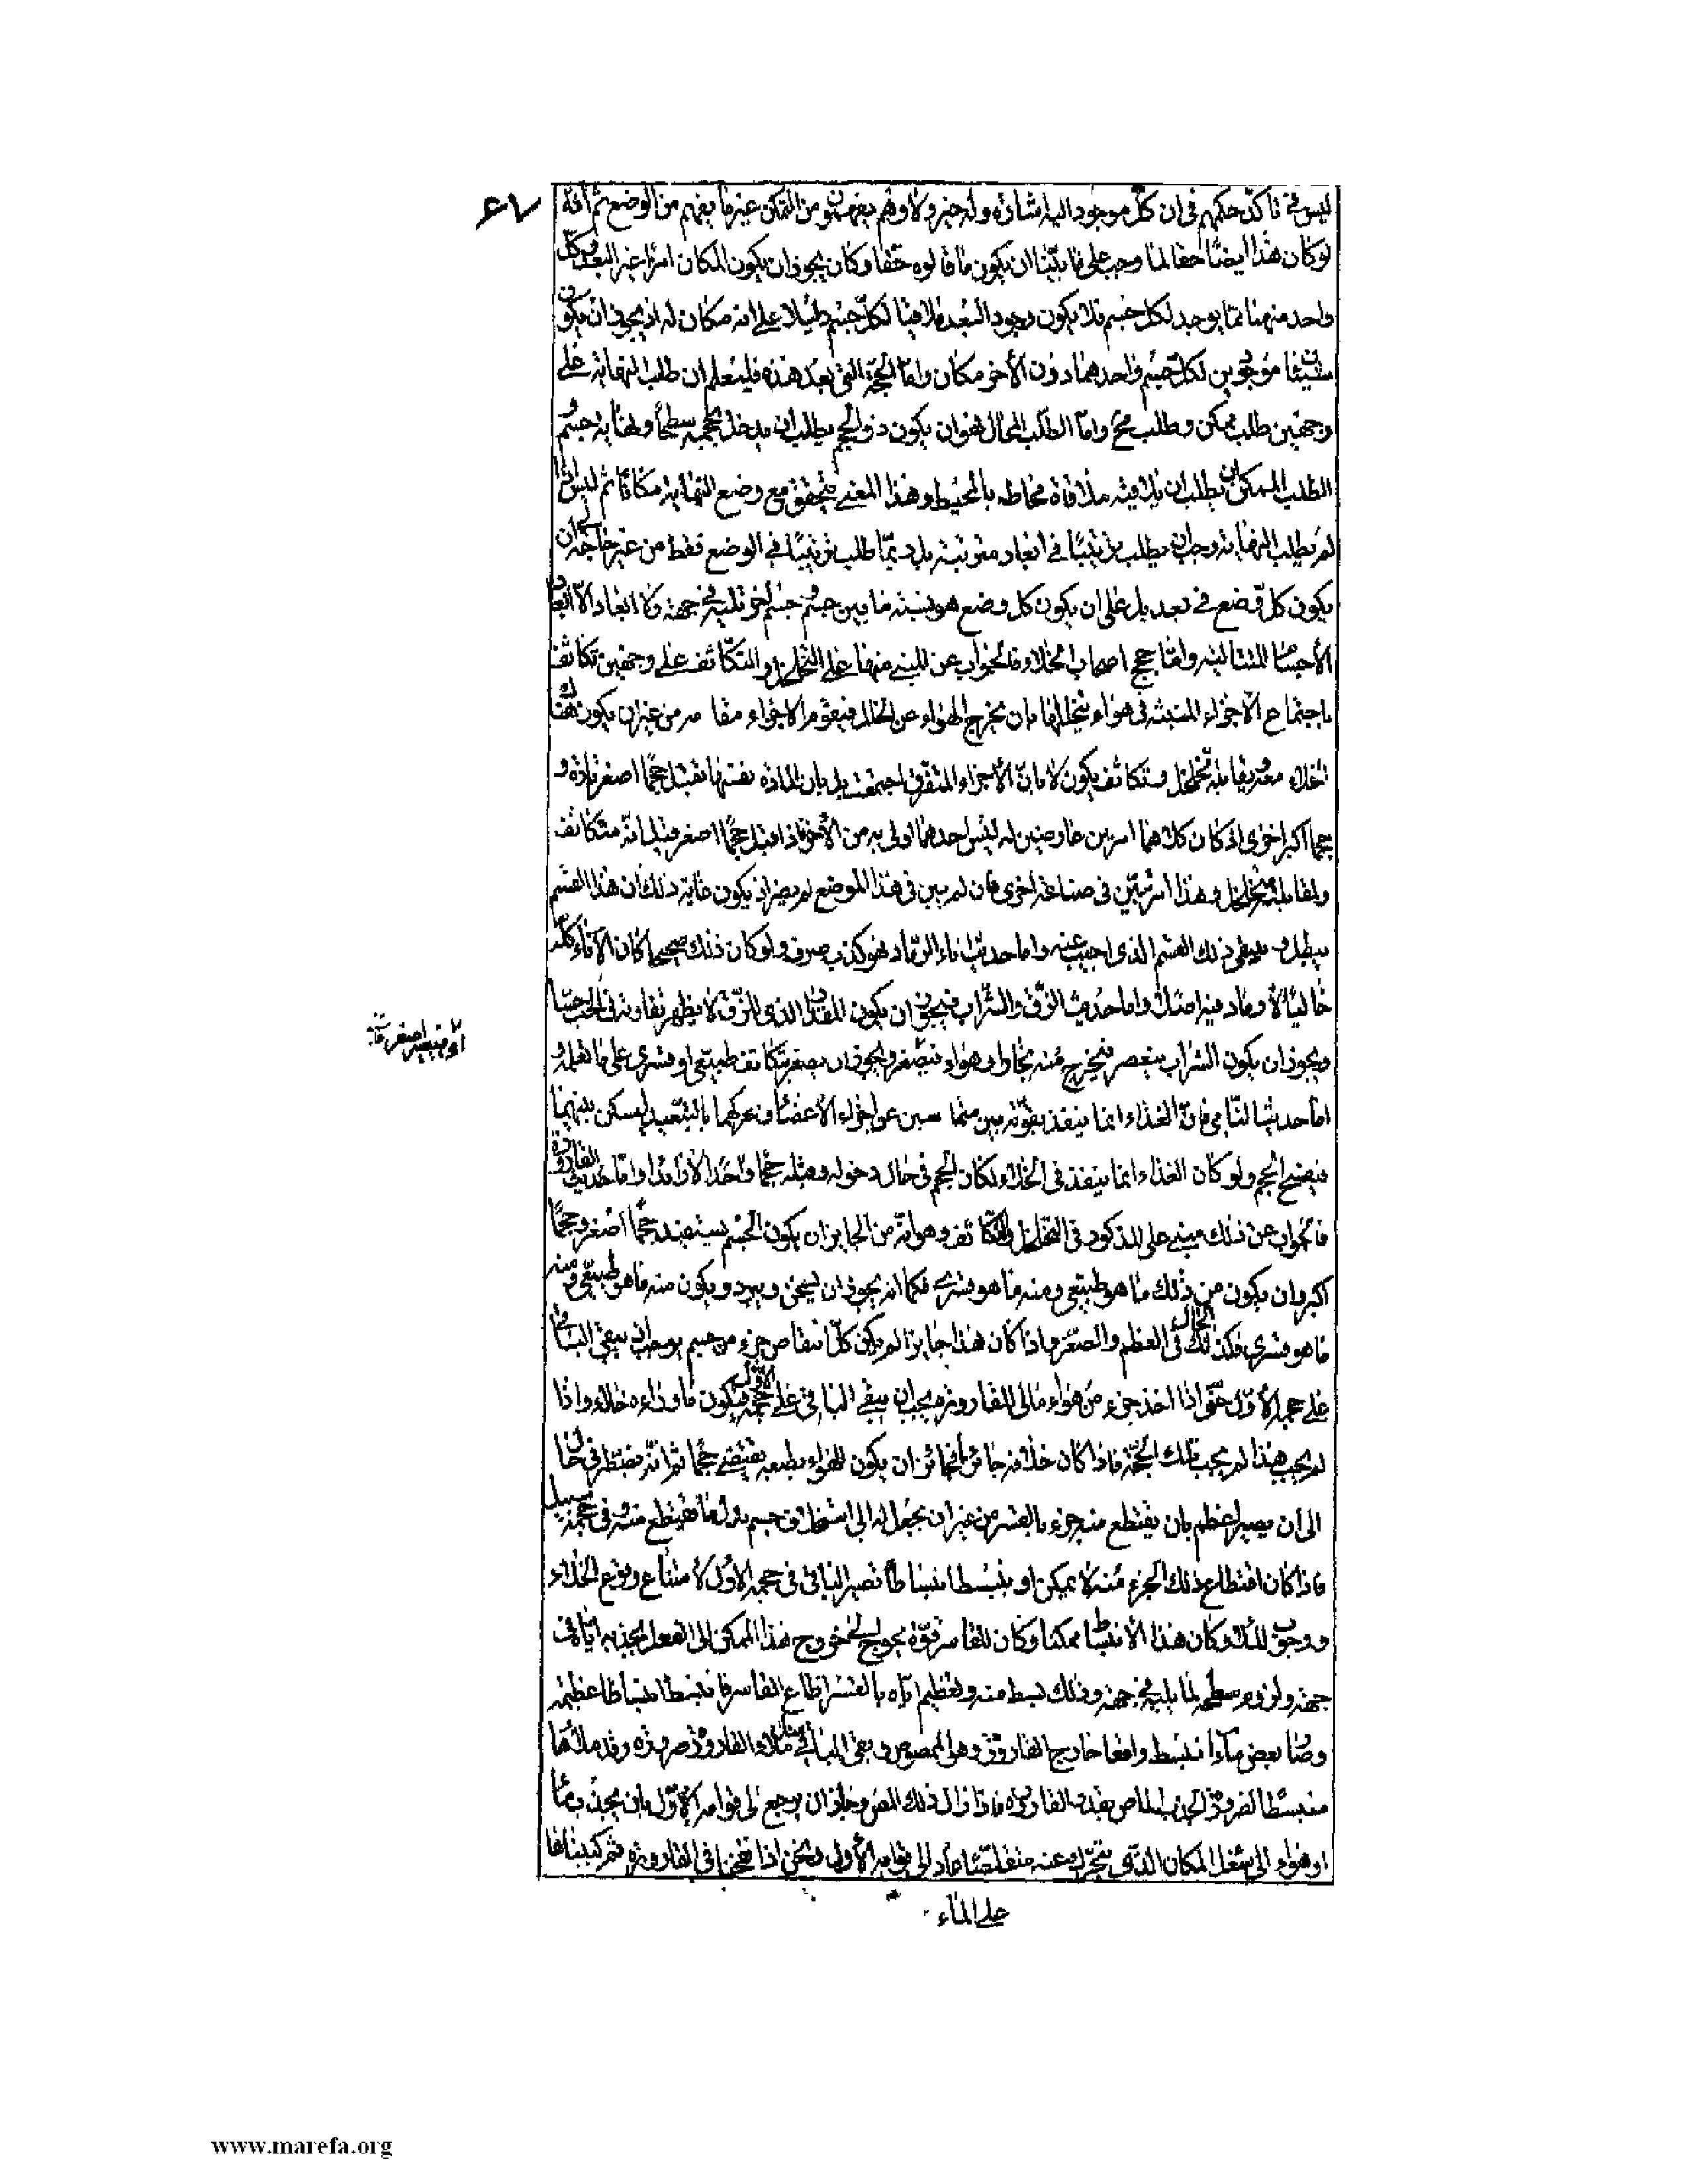 ٦٧
ليس في تأكد حكمهم في ان كل موجود اليه اشارة وله حيز ولا وهم يفهمون من التمكن غير ما يفهم من الوضع ثم انه
لو كان هذا ايضا حقا لما وجب على ما بينا ان يكون ما قالوه حقا وكان يجوز ان يكون المكان امرا غير البعد وكل
واحد منهما مما يوجد لكل جسم فلا يكون وجود البعد ملاقيا لكل جسم دليلا على انه مكان له اذ يجوز ان يكون
شيئان موجودين لكل جسم واحدهما دون الآخر مكان واما الحجة التي بعد هذه فليعلم ان طلب النهاية على
وجهين طلب ممكن وطلب مح واما الطلب المحال فهو ان يكون ذو الحجم يطلب ان يدخل بحجمه سطحا ونهاية جسم و
الطلب الممكن ان يطلب ان يلاقيه ملاقاة محاط به بالمحيط وهذا المعنى يتحقق مع وضع النهاية مكانا ثم ليس اذا
لم يطلب النهاية وجب ان يطلب ترتيبا في ابعاد مترتبة بل ربما طلب ترتيبا في الوضع فقط من غير حاجة الى ان
يكون كل وضع في بعد بل على ان يكون كل وضع هو نسبة ما بين جسم وجسم آخر تليه في جهة ولا ابعاد الا ابعاد
الأجسام المتتالية واما حجج اصحاب الخلاء فالجواب عن المبنية منها على التخلخل والتكاثف على وجهين تكاثف
باجتماع الأجزاء المنبثة في هواء يتخللها بان يخرج الهواء عن الخلل فيقوم الاجزاء مقامه من غير ان يكون هناك
خلاء معد يقابله تخلخل وتكاثف يكون لا بان الأجزاء المتفرقة اجتمعت بل بان المادة نفسها تقبل حجما اصغر تارة و
حجما اكبر اخرى اذ كان كلاهما امرين عارضين له ليس احدهما اولى به من الآخر فاذا قبل حجما اصغر قيل انه متكاثف
ولمقابله متخلخل وهذا امر تبين في صناعة اخرى فان لم يبين في هذا الموضع لم يضر اذ يكون غاية ذلك ان هذا القسم
يبطل و يبقى ذلك القسم الذي اجيب عنه واما حديث اناء الرماد فهو كذب صرف ولو كان ذلك صحيحا كان الاناء كله
خاليا لا رماد فيه اصلا واما حديث الزق والشراب فيجوز ان يكون المقدار الذي للزق لا يظهر تفاوته في الحب حسا
ويجوز ان يكون الشراب ينعصر فيخرج منه بخار او هواء فيصغر ويجوز ان يصغر بتكاثف طبيعي او قسري على ما تعلمه و
اما حديث النامي فان الغذاء انما ينفذ بقوته بين متماسين من اجزاء الأعضاء فيحركهما بالتبعيد ليسكن بينهما
فينفسح الحجم ولو كان الغذاء انما ينفذ في الخلاء لكان الحجم في حال دخوله وقبله حجما واحدا لا زائدا واما حديث القارورة
فالجواب عن ذلك مبني على المذكور في التخلخل والتكاثف وهو انه من الجايز ان يكون الجسم يستفيد حجما اصغر وحجما
اكبر وان يكون من ذلك ما هو طبيعي ومنه ما هو قسري فكما انه يجوز ان يسخن ويبرد ويكون منه ما هو طبيعي ومنه
ما هو قسري فكذلك الحال في العظم والصغر واذا كان هذا جايزا لم يكن كل انتقاص جزء من جسم يوجب ان يبقى الباقي
على حجمه الأول حتى اذا اخذ جزء من هواء مالئ القارورة يجب ان يبقى الباقي على حجمه الأول فيكون ما وراءه خلاء واذا
لم يجب هذا لم يجب تلك الحجة فاذا كان خلافه جائزا فجائز ان يكون للهواء بطبعه يقتضي حجما ثم انه يضطر في حال
الى ان يصير اعظم بان يقتطع منه جزء بالقسر من غير ان يجعل له الى استخلاف جسم بدل ما يقتطع منه في حجمه سبيل
فاذا كان اقتطاع ذلك الجزء منه لا يمكن او ينبسط انبساطا يصير الباقي في حجمه الاول لامتناع وقوع الخلاء
ووجوب الملاء وكان هذا الأنبساط ممكنا وكان للقاسر قوة يحوج الى خروج هذا الممكن الى الفعل بجذبه اياه في
جهة ولزوم سطحه لما يليه في جهة وذلك بسط منه وتعظيم اياه بالقسر اطاع القاسر فانبسط انبساطا عظيما
وصار بعض ما انبسط واقعا خارج القارورة وهو الممصوص وبقي الباقي ملاء القارورة ضرورة وقد ملأها
منبسطا لضرورة الجذب الماص بقدر القارورة فاذا زال ذلك المص وجاز ان يرجع الى قوامه الأول بان يجذب ماء
او هواء الى شغل المكان الذي يتحرك عنه متقلصا عاد الى قوامه الأول ونحن اذا نفخنا في القارورة ثم كببناها
على الماء
www.marefa.org